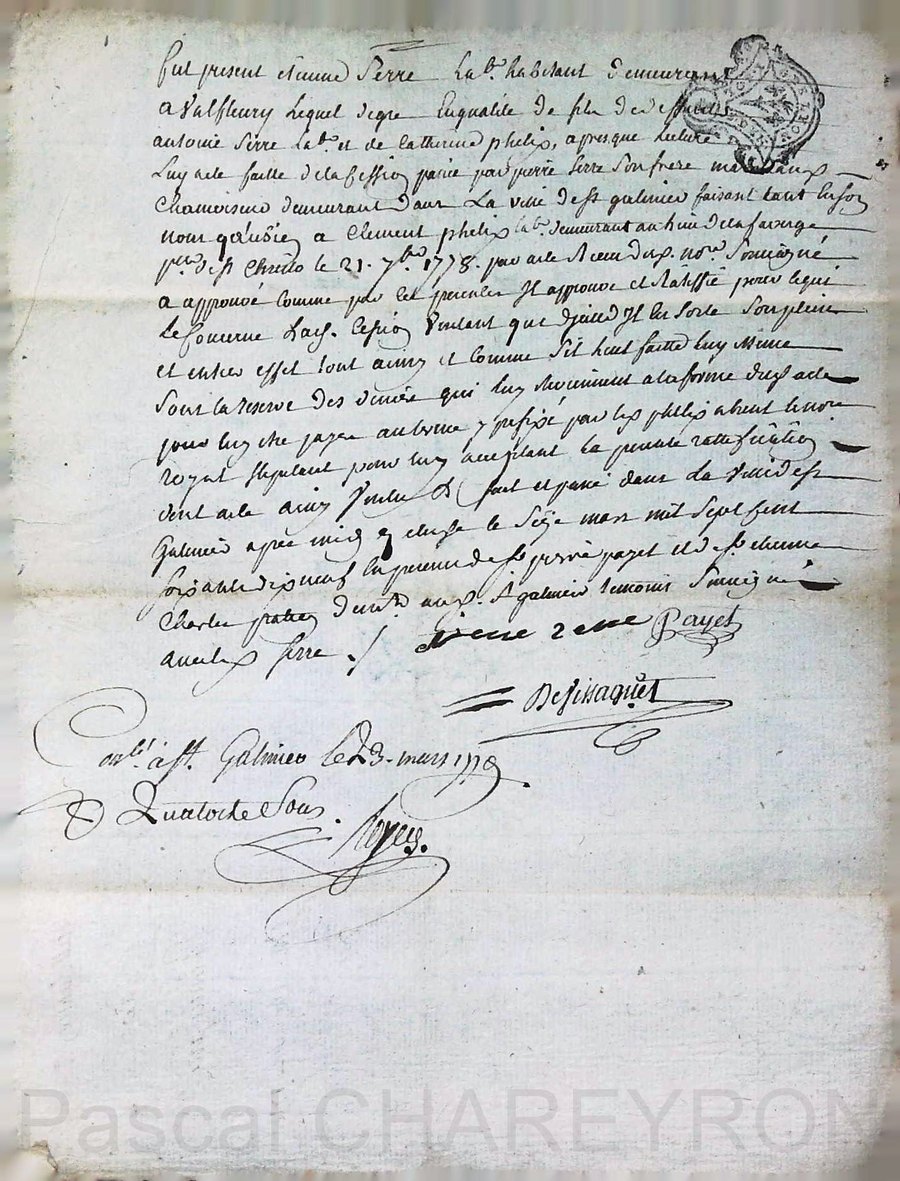 fut present etienne Serre lab.r habitant demeurant
a Valfleury lequel degre En qualité de fils de deffunts
antoine Serre lab.r et de Catherine phelix, apres que lecture
Luy a ete faitte de la Cession passée par pierre Serre Son frere
Chamoiseur demeurant dans La ville de St galmier faisant tant En son
nom a Clement phelix lab.r demeurant au lieu de la faverge
p.sse de St Christo le 21. 7.bre 1778. par acte Receu du d. no.re Soussigné
a approuvé Comme par Les presentes Il approuve et Ratiffie pour ce qui
Le Concerne Lad. Cession Voulant que d'ycelle Il en Sorte Son plein
et entier effet tout ainsy et Comme S'il l'eut faitte luy Meme
Sous la reserve des deniers qui luy Reviennent a la forme dud. acte
pour luy etre payés au terme y prefixé par led. phelix absent le no.re
royal Stipulant pour luy acceptant la presente rattification
dont acte ainsy Voulu &. fait et passé dans La Ville de St
Galmier apres midy en etude le Seize mars mil Sept Cent
Soixante dix neuf En presence de Sr pierre payet et de Sr etienne
Charles praticiens demt. aud. St galmier temoins Soussignés
avec led. Serre ./ Serre Payet
Desissaquet
Con.lé à St. Galmier le 23. mars 177
R Quatorze Sous.
Royer.
Pascal CHAREYRON